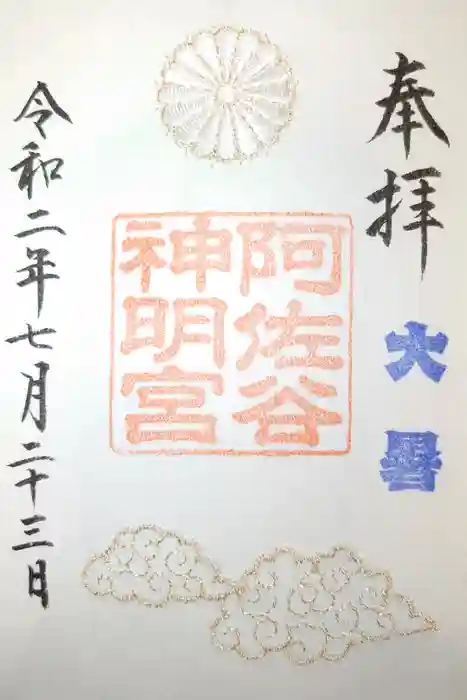 奉拝
大暑
阿佐谷
神明宮
令和二年七月二十三日